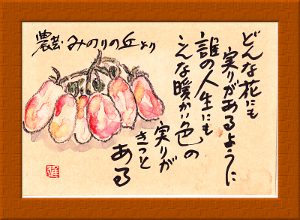 どんな花にも
実りがあるように
誰の人生にも
こんな暖かい色の
実りが
きっと
ある
みのりの丘より